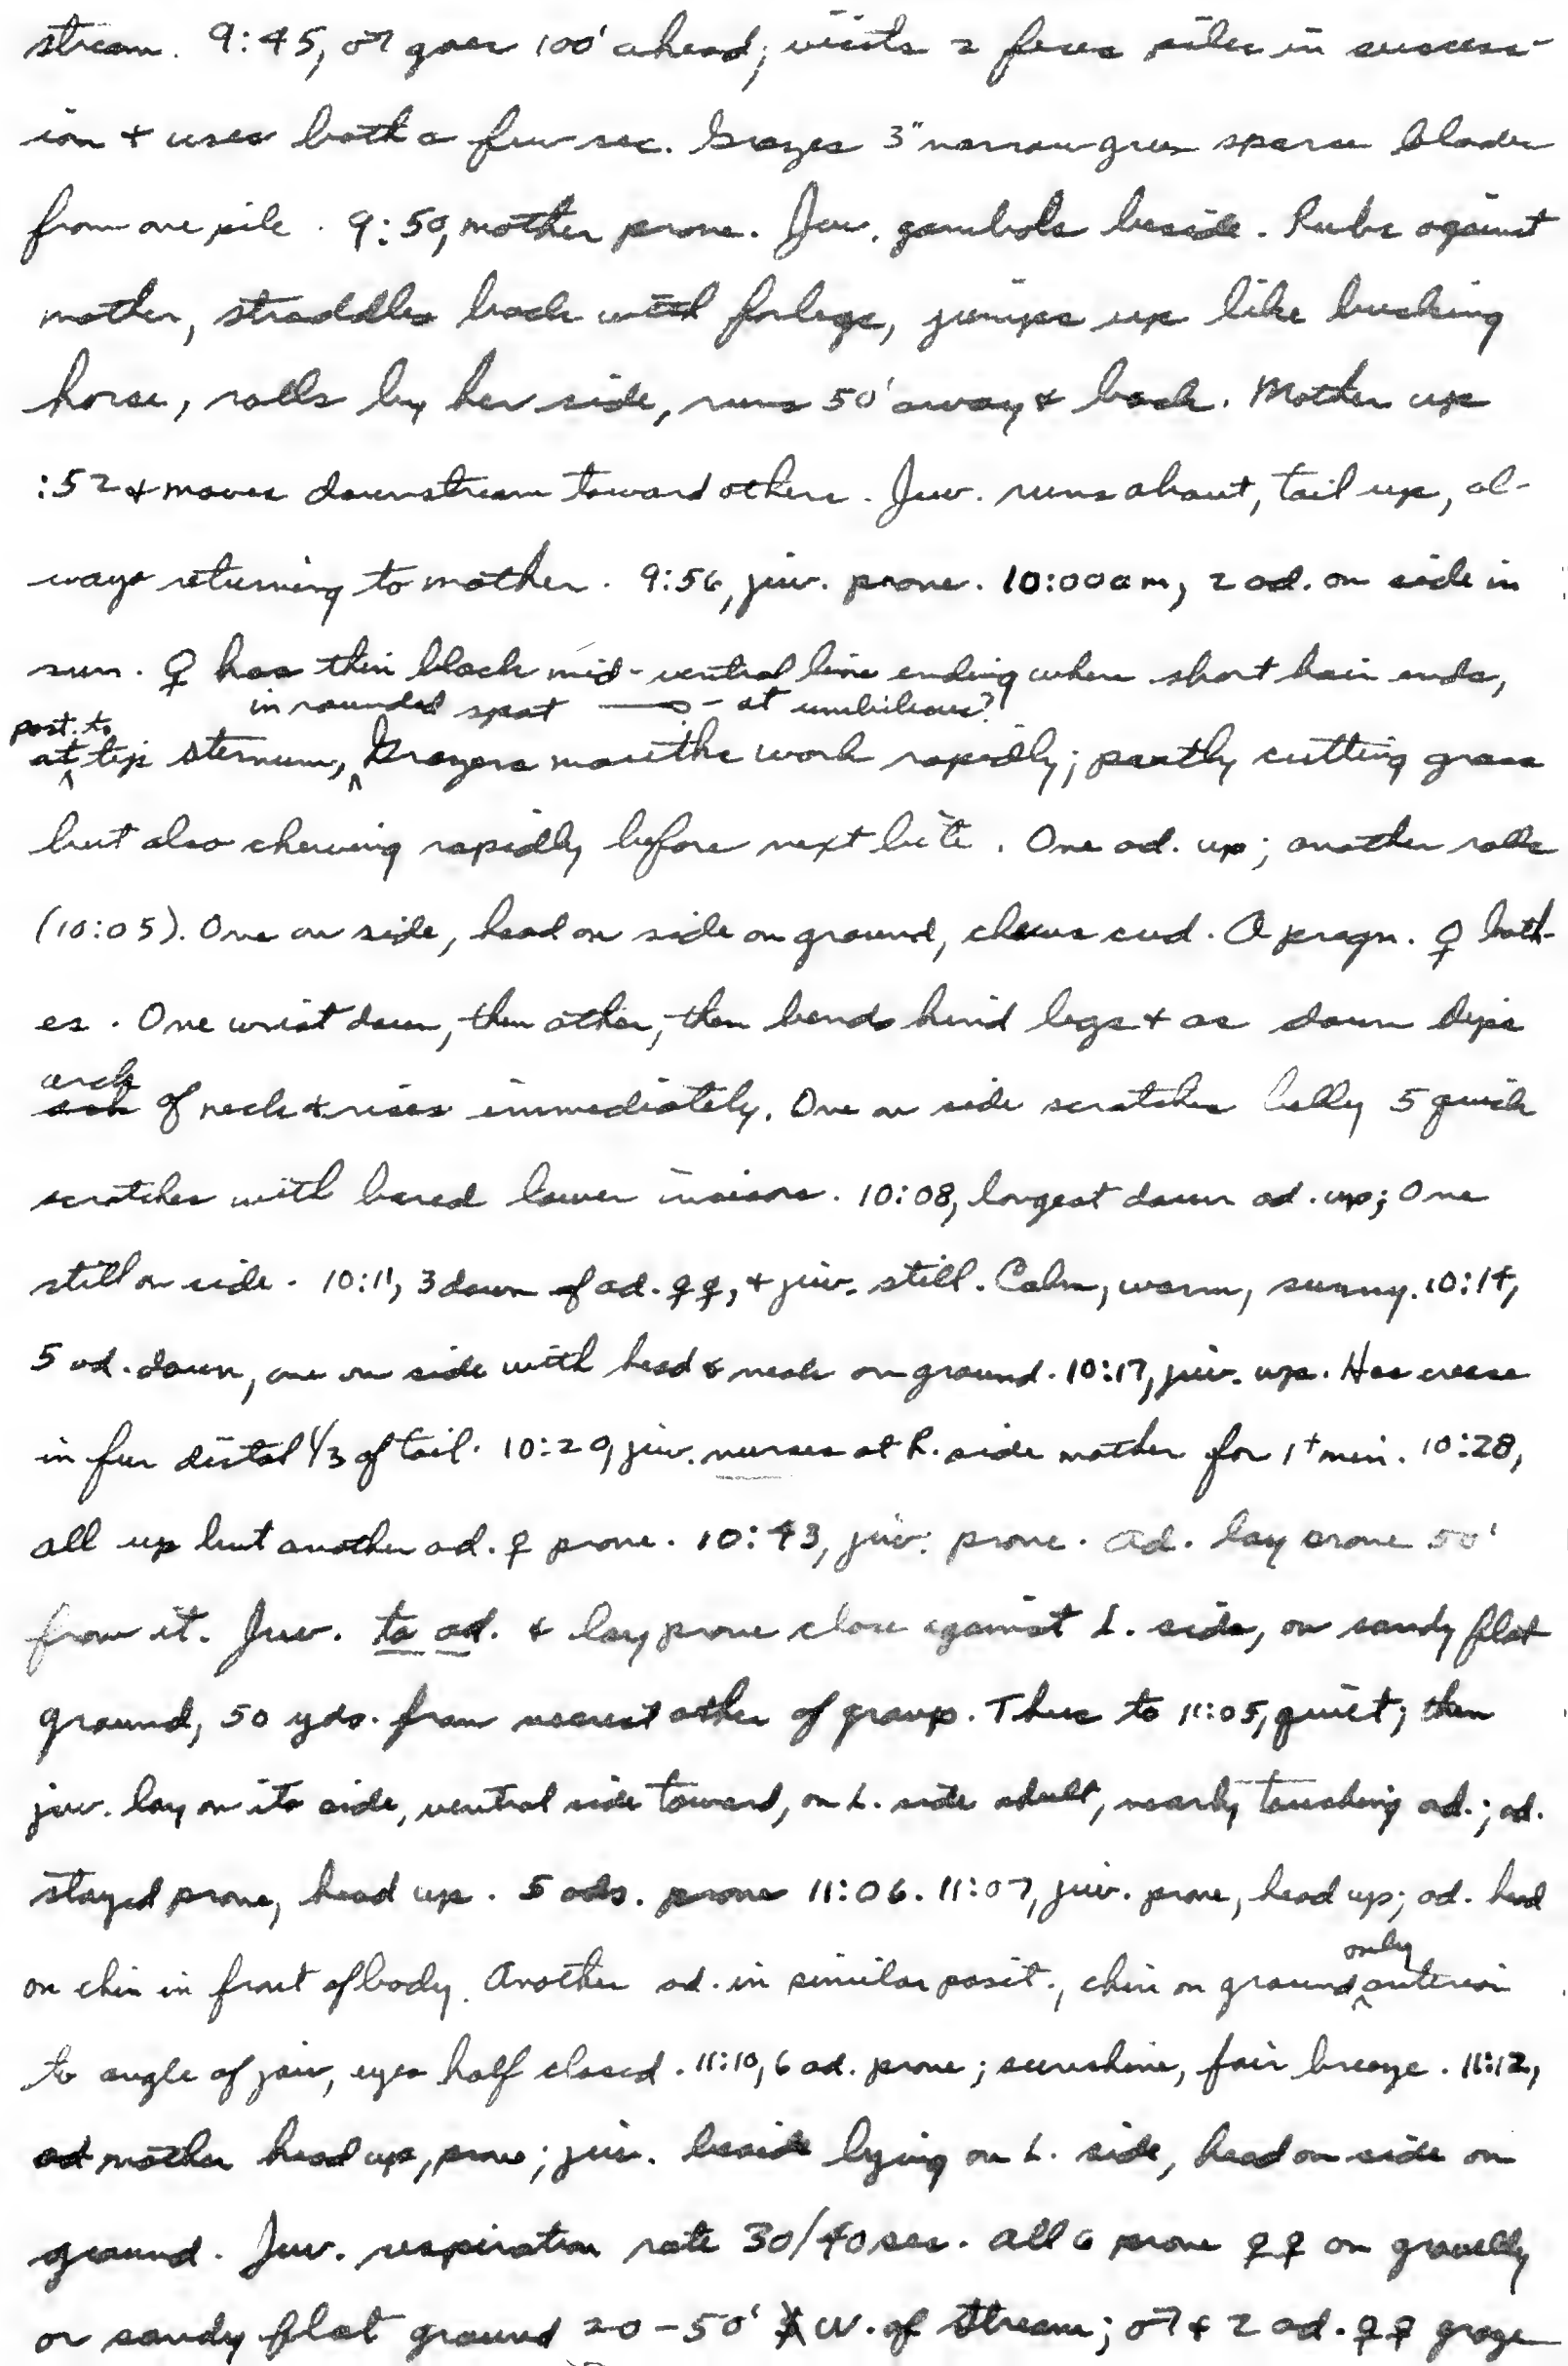 stream. 9:45, ♂ goes 100' ahead; visits 2 feces piles in success-
ion + uses both a few sec. Grazes 3" narrow green sparse blades
from one pile. 9:50, mother prone. Juv. gambols beside. Rubs against
mother, straddles back with forlegs, jumps up like bucking
horse, rolls by her side, runs 50' away & back. Mother up
:52 & moves downstream toward others. Juv. runs about, tail up, al-
ways returning to mother. 9:56, juv. prone. 10:00 am, 2 ad. on side in
sun. ♀ has thin black mid-ventral line ending where short hair ends,
in rounded spot - at umbilicus?
post. to
at tip sternum, Grazers mouths work rapidly; partly cutting grass
but also chewing rapidly before next bite. One ad. up; another rolls
(10:05). One on side, head on side on ground, chews cud. A pregn. ♀ bath-
es. One wrist down, then other, then bends hind legs & as down dips
arch
of neck & rises immediately. One on side scratches belly 5 quick
scratches with bared lower incisors. 10:08, longest down ad. up; One
still on side. 10:11, 3 down of ad. ♀♀, & juv. still. Calm, warm, sunny. 10:14,
5 ad. down, one on side with head & neck on ground. 10:17, juv. up. Has crease
in fur distal 1/3 of tail. 10:20, juv. nurses at R. side mother for 1+ min. 10:28,
all up but another ad. ♀ prone. 10:43, juv. prone. Ad. lay prone 50'
from it. Juv. to ad. & lay prone close against L. side, on sandy flat
ground, 50 yds. from nearest other of group. Thus to 11:05, quiet; then
juv. lay on its side, ventral side toward, on L. side adult, nearly touching ad.; ad.
stayed prone, head up. 5 ads. prone 11:06. 11:07, juv. prone, head up; ad. head
on chin in front of body. Another ad. in similar posit., chin on ground anterior
only
to angle of jaw, eyes half closed. 11:10, 6 ad. prone; sunshine, fair breeze. 11:12,
ad mother head up, prone; juv. beside lying on L. side, head on side on
ground. Juv. respiration rate 30/40 sec. All 6 prone ♀♀ on gravelly
or sandy flat ground 20-50' W. of stream; ♂ & 2 ad. ♀♀ graze